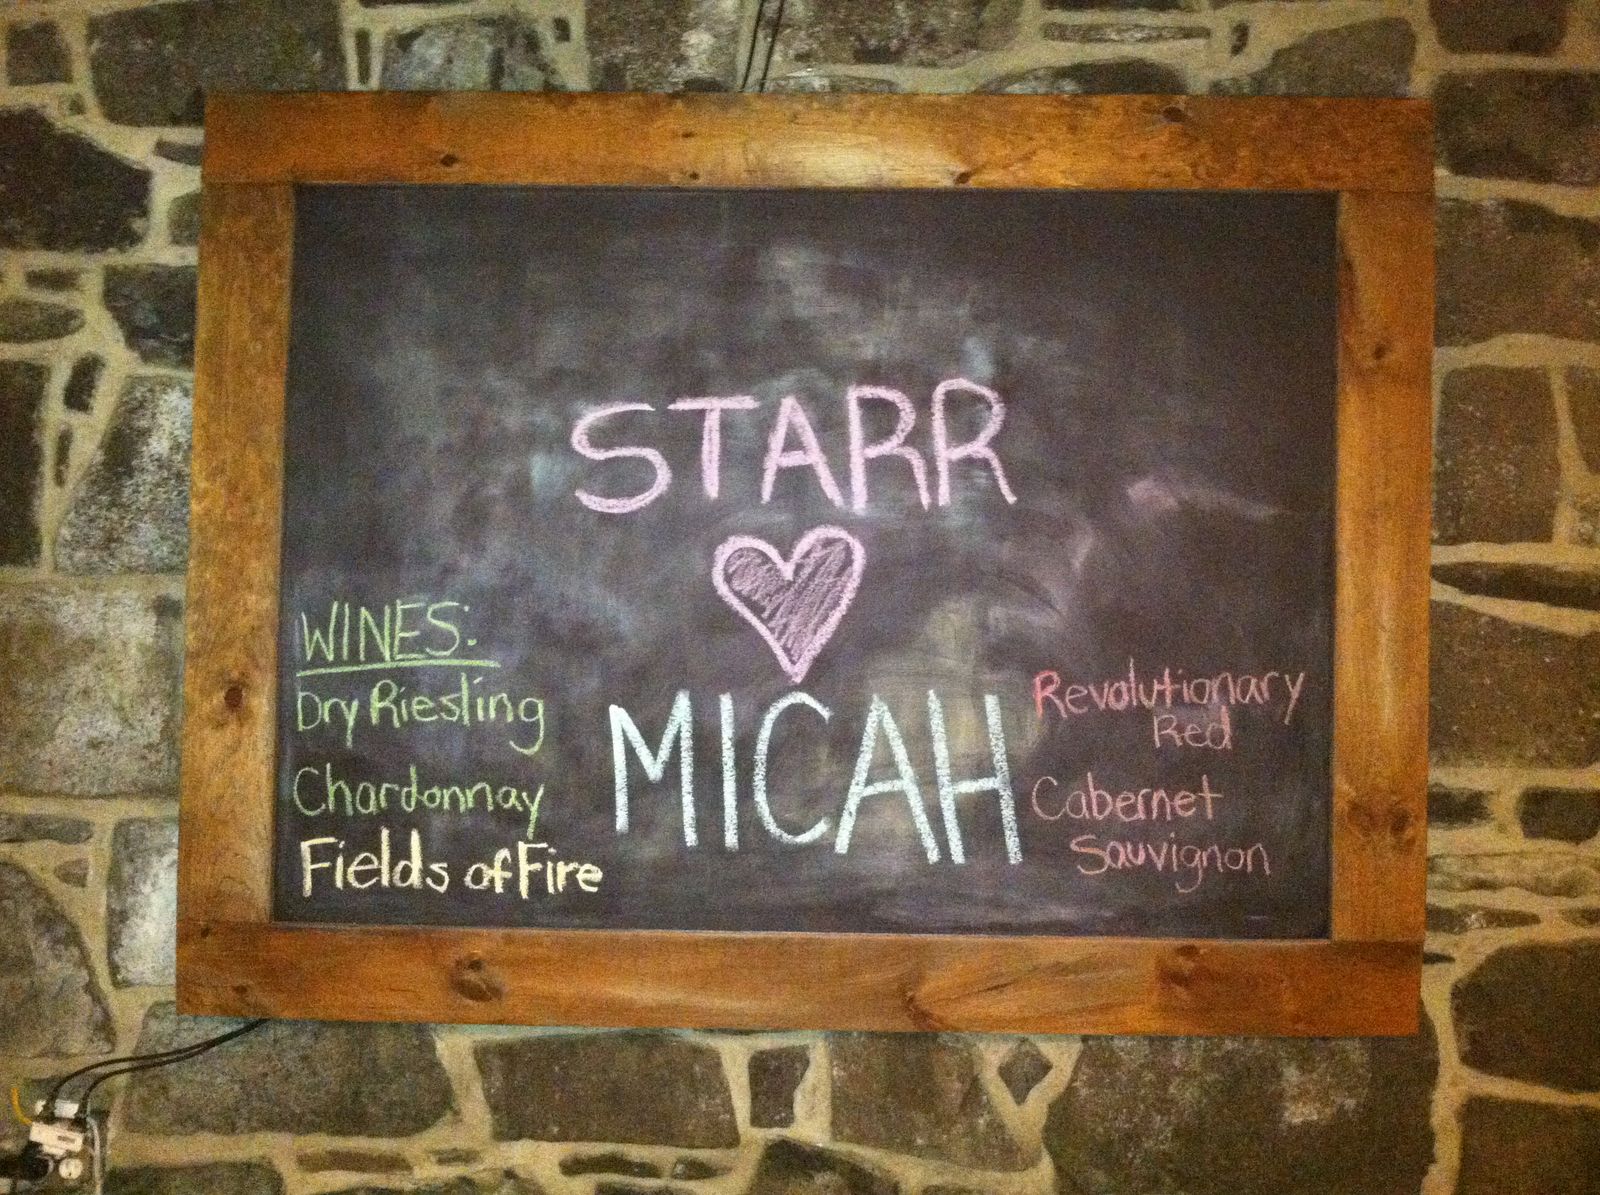 STARR
MICAH
WINES:
Dry Riesling
Chardonnay
Fields of Fire
Revolutionary
Red
Cabernet
Sauvignon